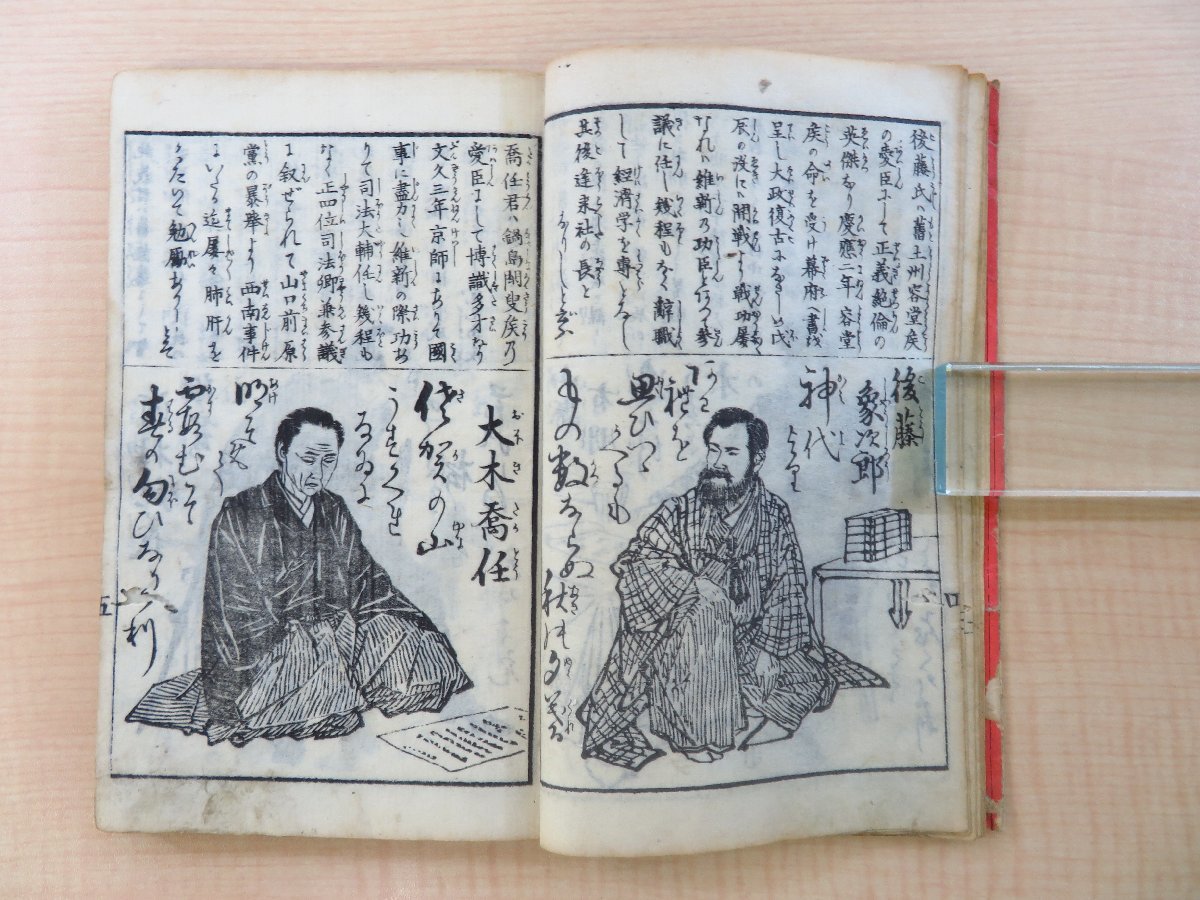 後藤氏ハ舊土州容堂矦
の愛臣にして正義絶倫の
英傑なり慶應二年容堂
矦の命を受け幕府へ書
呈し大政復古に
辰の役にハ開戦より戦功屡
なれハ維新乃功臣となり参
議に任し幾程もなく辭職
して経済学を専らにし
其後蓬莱社の長と
なりしと云
後藤
象次郎
神代より
禮を
もの数ならぬ秋の夕
喬任君ハ鍋島閑叟矦乃
愛臣にして博識多才なり
文久三年京師にありて國
事に盡力し維新の際功あ
りて司法大輔任し幾程も
なく正四位司法卿兼参議
に叙せられて山口前原
黨の暴挙より西南事件
にいたる迄屡々肺肝を
くだいて勉励ありしとぞ
大木喬任
佐賀の山
うすくれ
なゐに
明て
霞むそ
春の匂ひなりけり